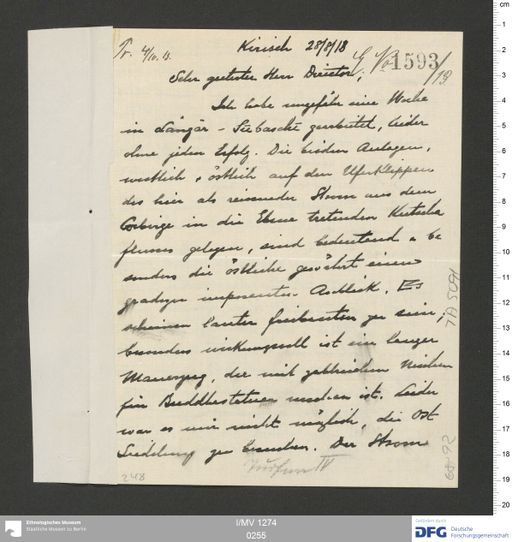 Pr. 4/10. 13.
Kirisch 28/8/13
1593/13
Sehr geehrter Herr Direktor,
Ich habe ungefähr eine Woche
in Längär - Sübaschi gearbeitet, leider
ohne jeden Erfolg. Die beiden Anlagen,
westlich + östlich auf den Uferklippen
des hier als reissender Strom aus dem
Gebirge in die Ebene tretenden Kutscha
flusses gelegen, sind bedeutend u. be
sonders die östliche gewährt einen
geradezu imposanten Anblick. Es
scheinen lauter Freibauten zu sein,
besonders wirkungsvoll ist ein langer
Mauerzug, der mit zahlreichen Nischen
für Buddhastatuen versehen ist. Leider
war es mir nicht möglich, die Ost
Siedelung zu besuchen. Der Strom
Turfan IV
248
TA 5091
Ethnologisches Museum
Staatliche Museen zu Berlin
I/MV 1274
0255
gefördert durch
DFG Deutsche
Forschungsgemeinschaft
cm
1
2
3
4
5
6
7
8
9
10
11
12
13
14
15
16
17
18
19
20